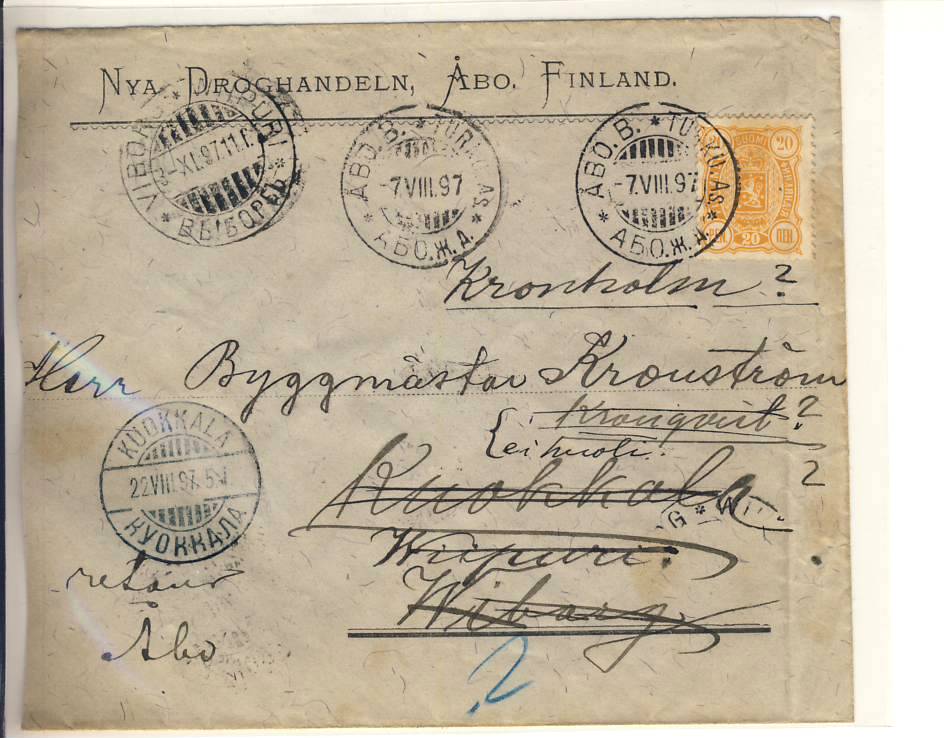 NYA DROGHANDELN, ÅBO. FINLAND.
VIBORG * WIIPURI * ВЫБОРГЪ *
XI.97.11.
ÅBO.B. * TURKU.AS * АБО.Ж.Д. *
-7.VIII.97
ÅBO.B. * TURKU.AS * АБО.Ж.Д. *
-7.VIII.97
20
SUOMI
20
PEN.
20
PEN.
Kronholm?
Herr Byggmästar Kronström
Kronqvist?
ei huoli.
?
Kuokkala
KUOKKALA
22.VIII.97.5
КУОККАЛА
G * W
Wiipuri
Wiborg
retour
Åbo
2